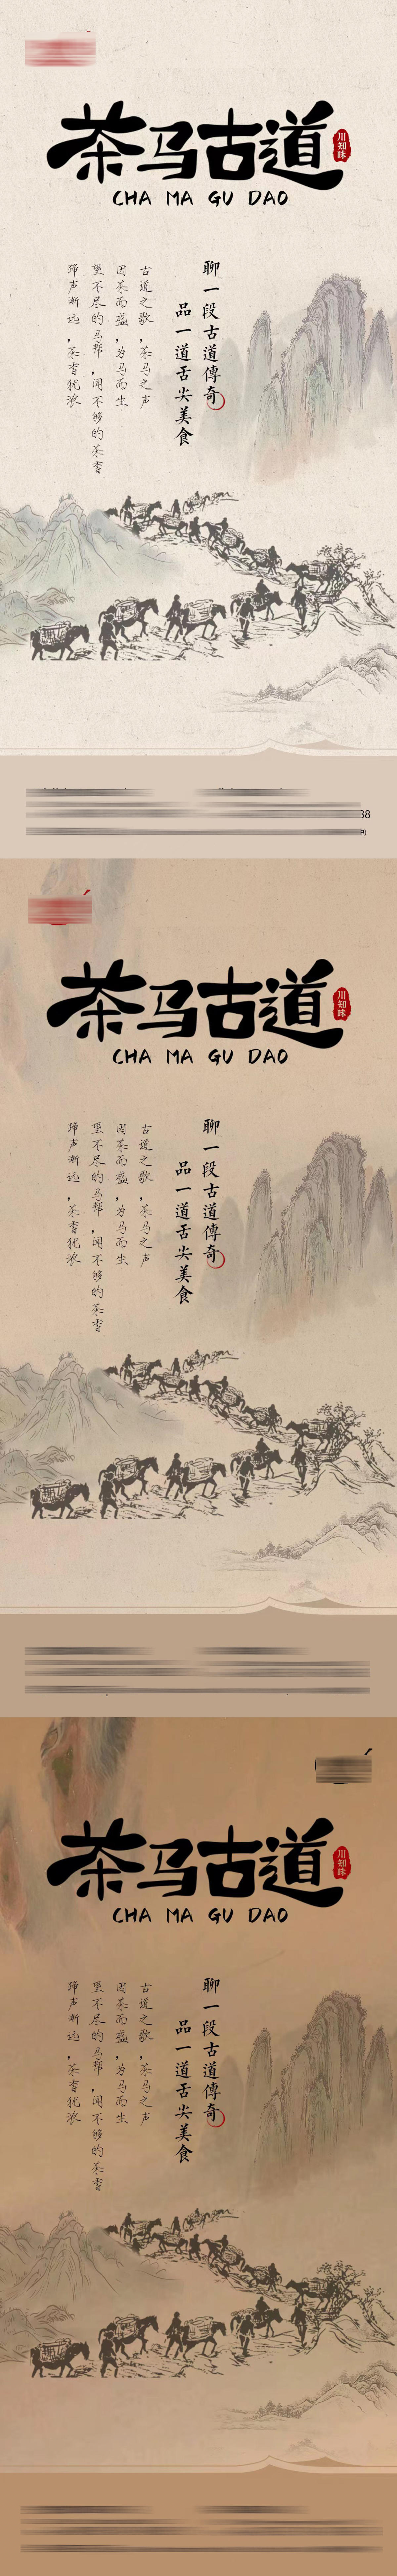 茶马古道
川知味
CHA MA GU DAO
聊一段古道傳奇
品一道舌尖美食
古道之歌,茶马之声
因茶而盛,为马而生
望不尽的马帮,闻不够的茶香
蹄声渐远,茶香犹浓
38
中)
茶马古道
川知味
CHA MA GU DAO
聊一段古道傳奇
品一道舌尖美食
古道之歌,茶马之声
因茶而盛,为马而生
望不尽的马帮,闻不够的茶香
蹄声渐远,茶香犹浓
茶马古道
川知味
CHA MA GU DAO
聊一段古道傳奇
品一道舌尖美食
古道之歌,茶马之声
因茶而盛,为马而生
望不尽的马帮,闻不够的茶香
蹄声渐远,茶香犹浓